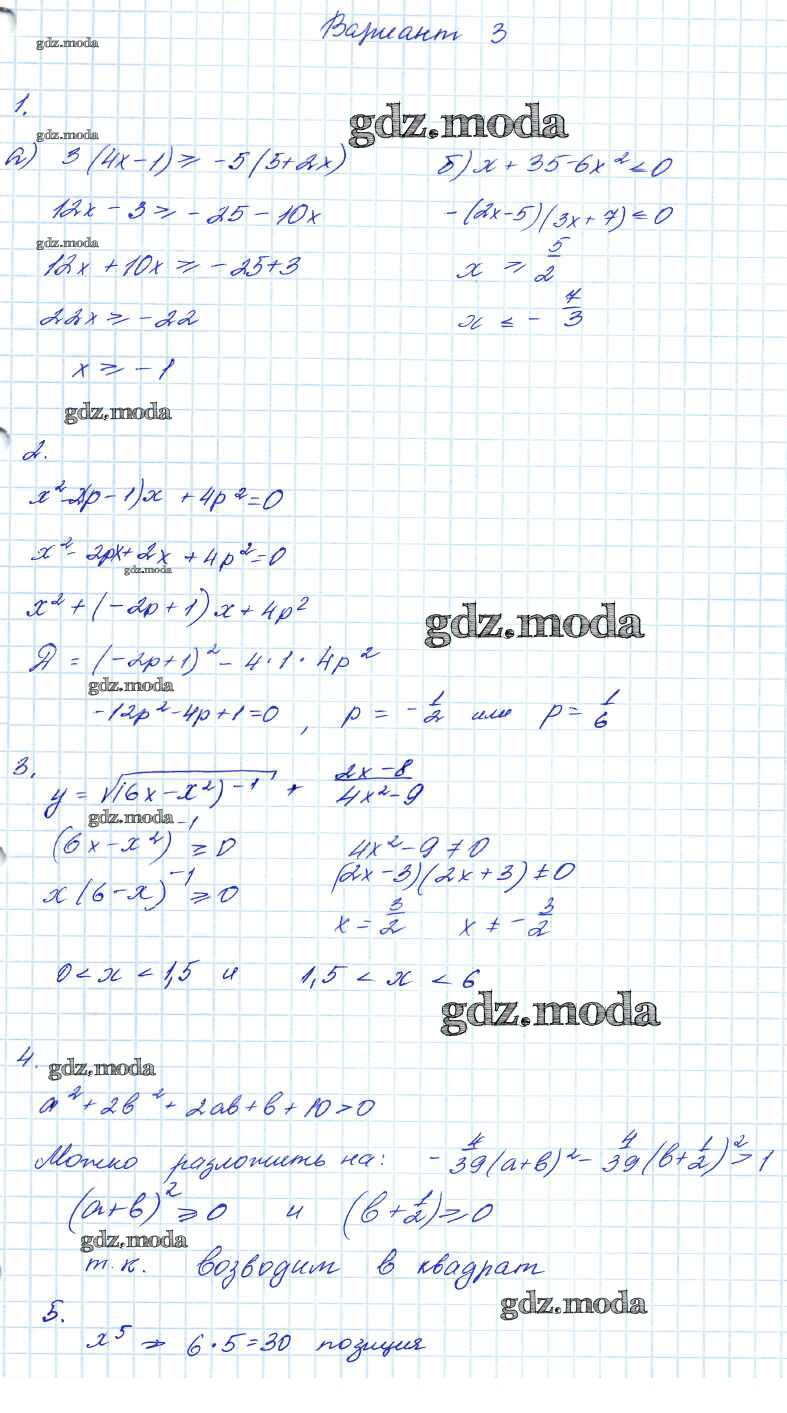 Вариант 3
gdz.moda
1.
gdz.moda
gdz.moda
а) 3(4x-1) ≥ -5(5+2x)
12x - 3 ≥ -25 - 10x
gdz.moda
12x + 10x ≥ -25+3
22x ≥ -22
x ≥ -1
б) x + 35-6x² ≤ 0
-(2x-5)(3x+7) ≤ 0
x ≥ 5/2
x ≤ - 7/3
gdz.moda
2.
x²-2(p-1)x + 4p²=0
x²- 2px+2x + 4p²=0
gdz.moda
x² + (-2p+1)x + 4p²
gdz.moda
Д = (-2p+1)² - 4·1·4p²
gdz.moda
-12p²-4p+1=0, p = -1/2 или p = 1/6
3.
y = √(6x-x²)⁻¹ + (2x-8)/(4x²-9)
gdz.moda
(6x-x²)⁻¹ ≥ 0
x(6-x)⁻¹ ≥ 0
4x²-9 ≠ 0
(2x-3)(2x+3) ≠ 0
x = 3/2 x ≠ - 3/2
0 < x < 1,5 и 1,5 < x < 6
gdz.moda
4.
gdz.moda
a² + 2b² + 2ab + b + 10 > 0
Можно разложить на: - 4/39(a+b)² - 4/39(b+1/2)² > 1
(a+b)² ≥ 0 и (b+1/2) ≥ 0
gdz.moda
т.к. возводим в квадрат
gdz.moda
5.
x⁵ ⇒ 6·5=30 позиция